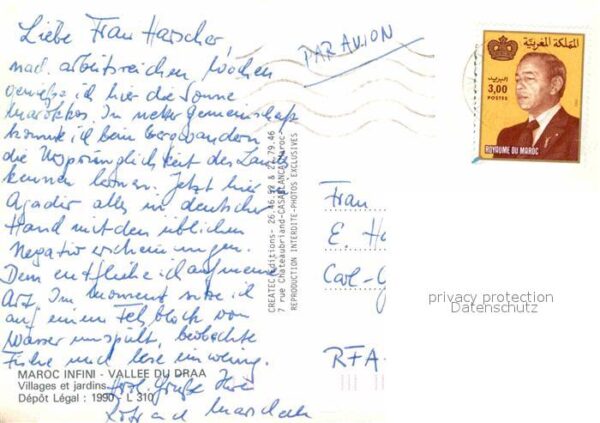 Liebe Frau Harscher,
nach arbeitsreichen Wochen
genieße ich hier die Sonne
Marokkos. In netter Gemeinschaft
konnte ich beim Bergwandern
die Ursprünglichkeit des Landes
kennen lernen. Jetzt hier
Agadir alles in deutscher
Hand mit den üblichen
Negativerscheinungen.
Dem entfliehe ich auf meine
Art. Im Moment sitze ich
auf einem Felsblock von
Wasser umspült, beobachte
Fische und lese ein wenig.
Herzl. Grüße Ihre
MAROC INFINI - VALLEE DU DRAA
Villages et jardins
Dépôt Légal : 1990 - L 310
CREATEC Editions - 26.46.52 & 22.79.46
7 rue Chateaubriand-CASABLANCA-Maroc
REPRODUCTION INTERDITE-PHOTOS EXCLUSIVES
PAR AVION
المملكة المغربية
البريد
3,00
POSTES
ROYAUME DU MAROC
Frau
E. Ha
Carl-G
RFA
privacy protection
Datenschutz